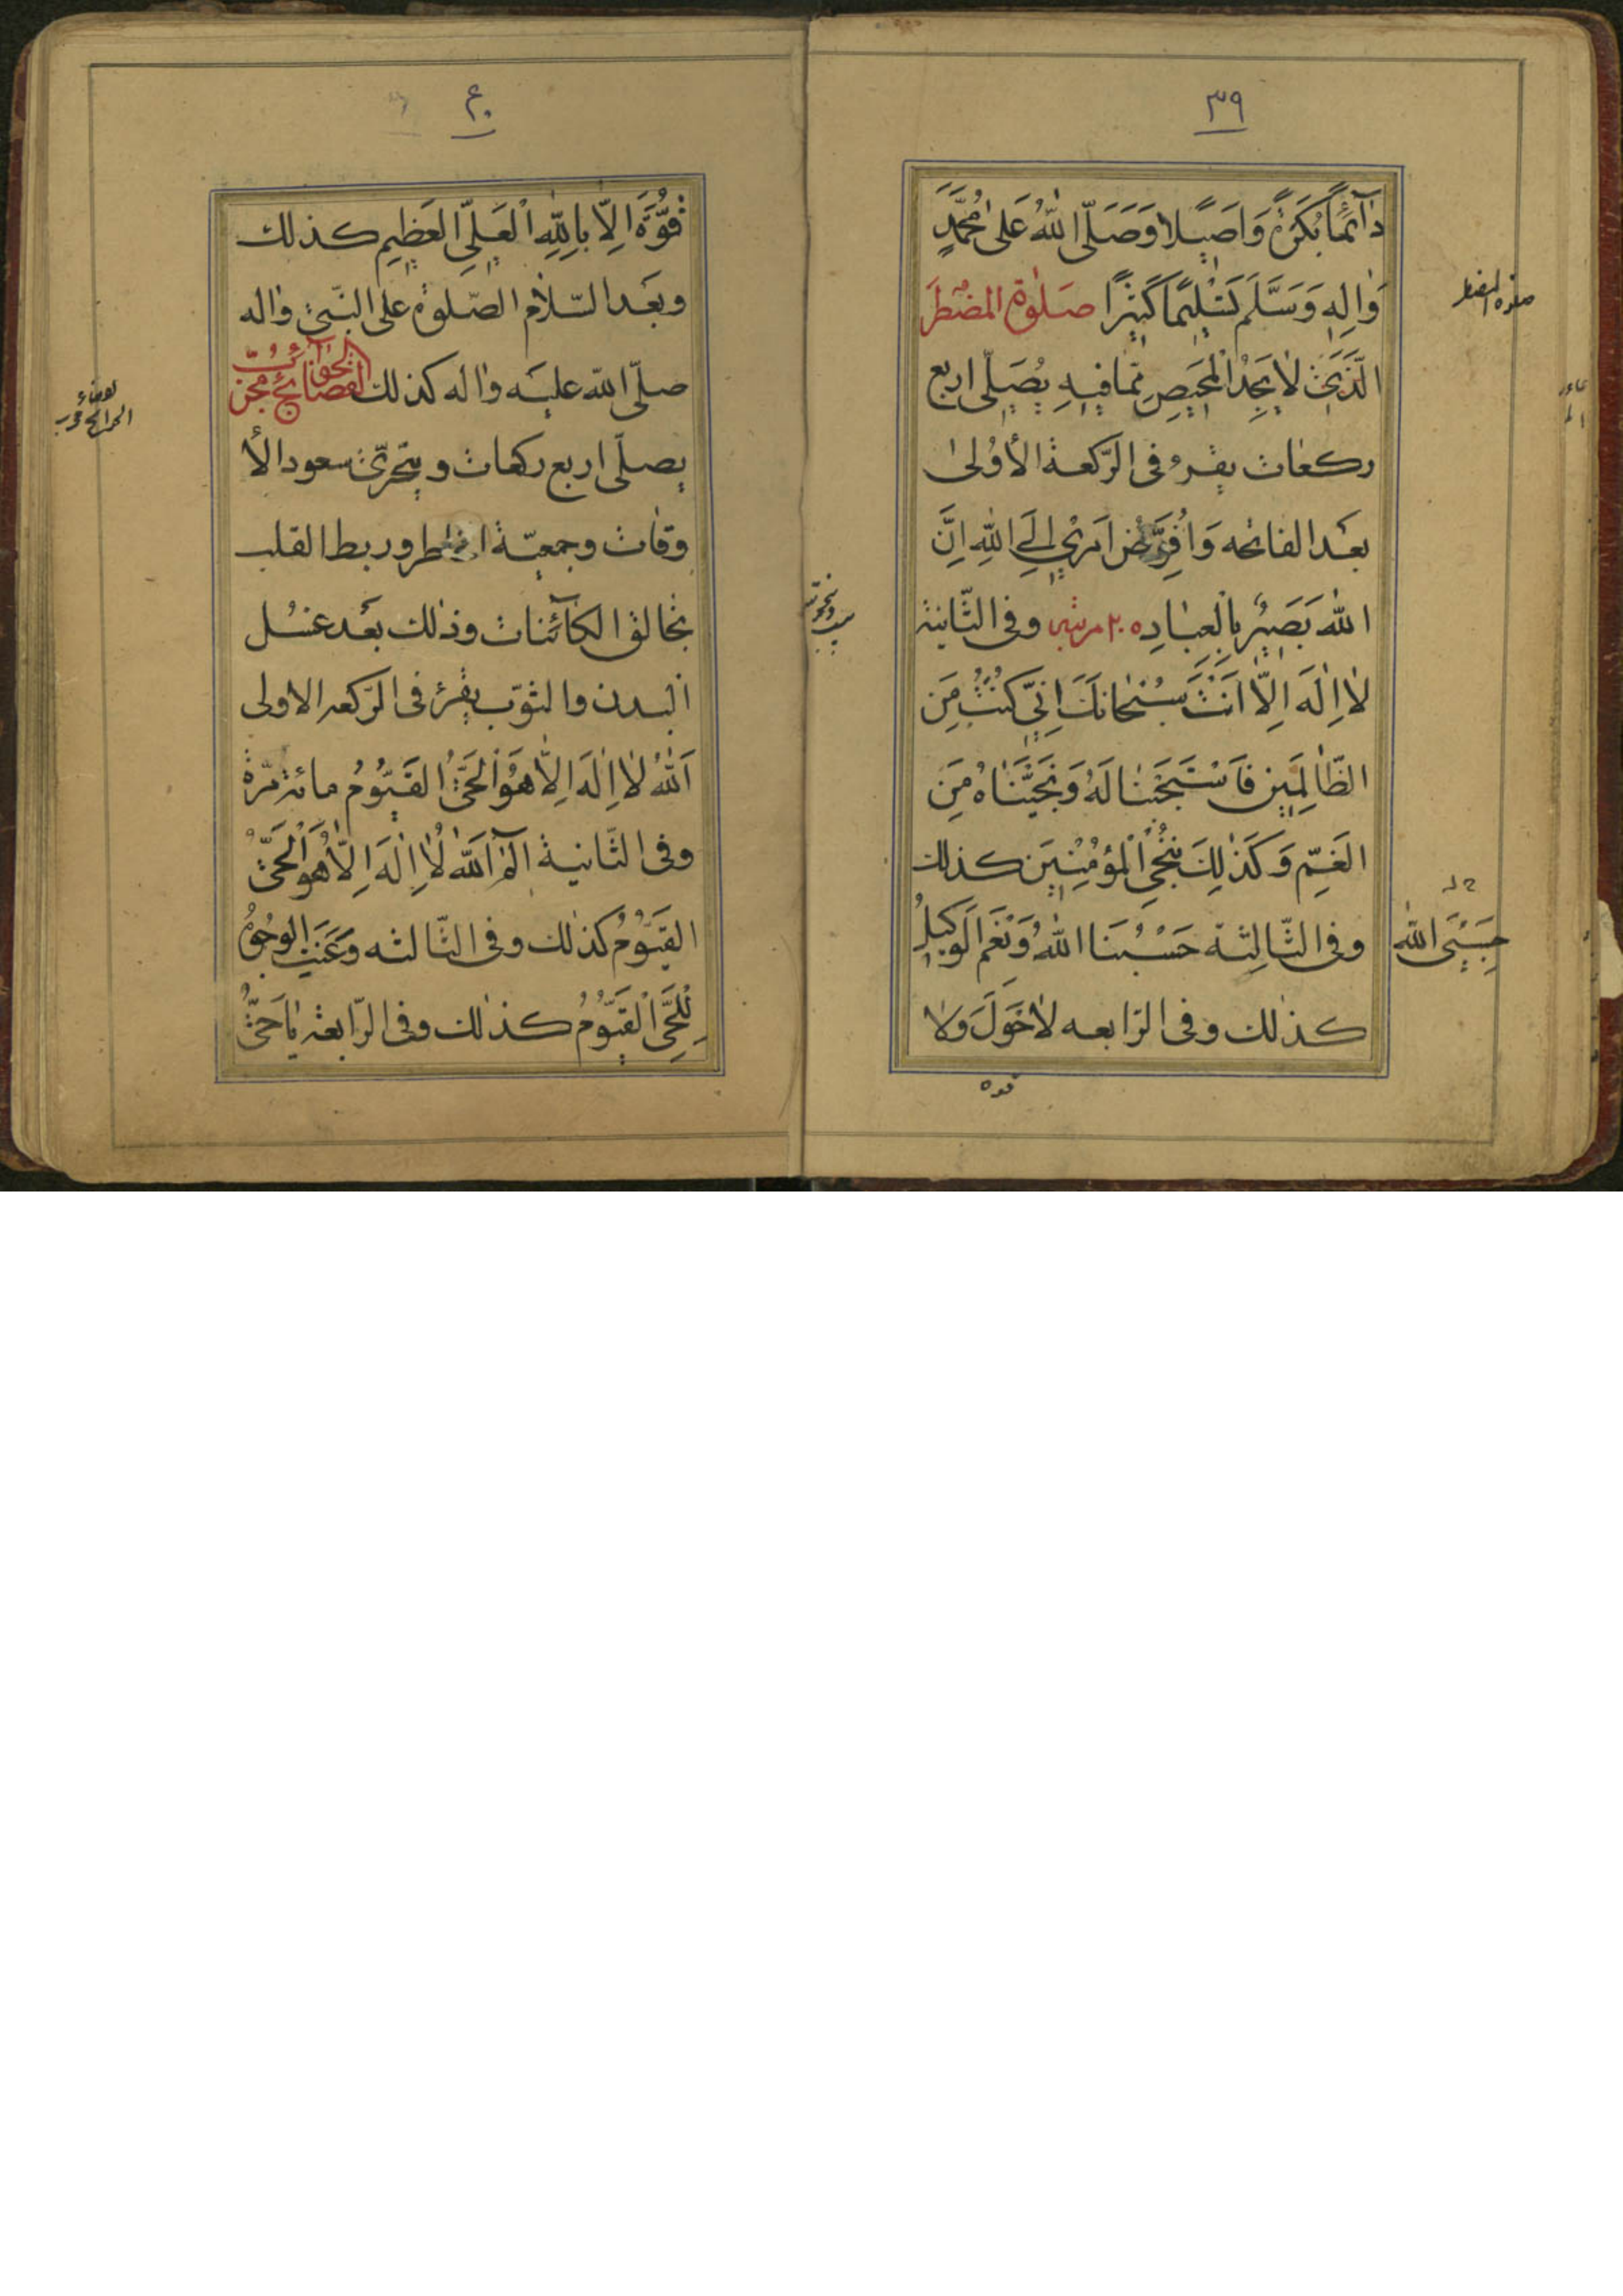 ٣٩
دٰآئمًا بُكرَةً وَاَصيٖلًا وَصَلَّى اللّٰهُ عَلىٰ مُحَمَّدٍ
وَاٰلِهِ وَسَلَّمَ تَسْليٖمًا كَثيٖرًا صَلوٰة المضْطَر
الَّذيٖ لٰا يَجِدُ الْمَحيٖص مِمّا فيٖهِ يُصَلّى اربع
ركعٰات يقرء فى الرّكعة الأوُلىٰ
بعَد الفاتحه وَاُفَوِّضُ اَمْريٖ اِلَى اللّٰهِ اِنَّ
اللّٰهَ بَصيٖرٌ بِالْعِبٰادِ ٢٠٥ مرتبه وفى الثّانية
لٰا اِلٰهَ اِلّٰا اَنْتَ سُبْحٰانَكَ اِنّيٖ كُنْتُ مِنَ
الظّٰالِميٖنَ فَاسْتَجَبْنٰا لَهُ وَنَجَّيْنٰاهُ مِنَ
الغَمِّ وَكَذٰلِكَ نُنْجِى الْمُؤْمِنيٖنَ كذلك
وفى الثّالِثة حَسْبُنَا اللّٰهُ وَنِعْمَ الوَكيٖل
حَسْبِىَ اللّٰه
كذلك وفى الرّابعه لٰا حَوْلَ وَلٰا
قوه
صلوه المضطر
٤٠
قُوَّةَ اِلّٰا بِاللّٰهِ الْعَلِىِّ العَظيٖمِ كذلك
وبعَد السّلاٰم الصّلوة على النّبىّ واٰله
صلّى اللّه عليَه واٰله كذلك لقضٰآء الحوٰآئج مجرّب
يصلّى اربع ركعات ويتحرّى سعود الأ
وقات وجمعيّة الخاطر وربط القلب
بخالق الكآئنات وذٰلك بعَد غسُل
البدن والثوّب يقرء فى الرّكعه الاولى
اَللّٰهُ لٰا اِلٰهَ اِلّٰا هُوَ الْحَىُّ القَيّوُمُ مائة مرّة
وفى الثّانية الٓمٓ اَللّٰهُ لٰا اِلٰهَ اِلّٰا هُوَ الْحَىُّ
القَيّوُمُ كذلك وفى الثّالثه وَعَنَتِ الوُجُوهُ
لِلْحَىِّ الْقَيّوُمِ كذٰلك وفى الرّابعة يٰا حَىُّ